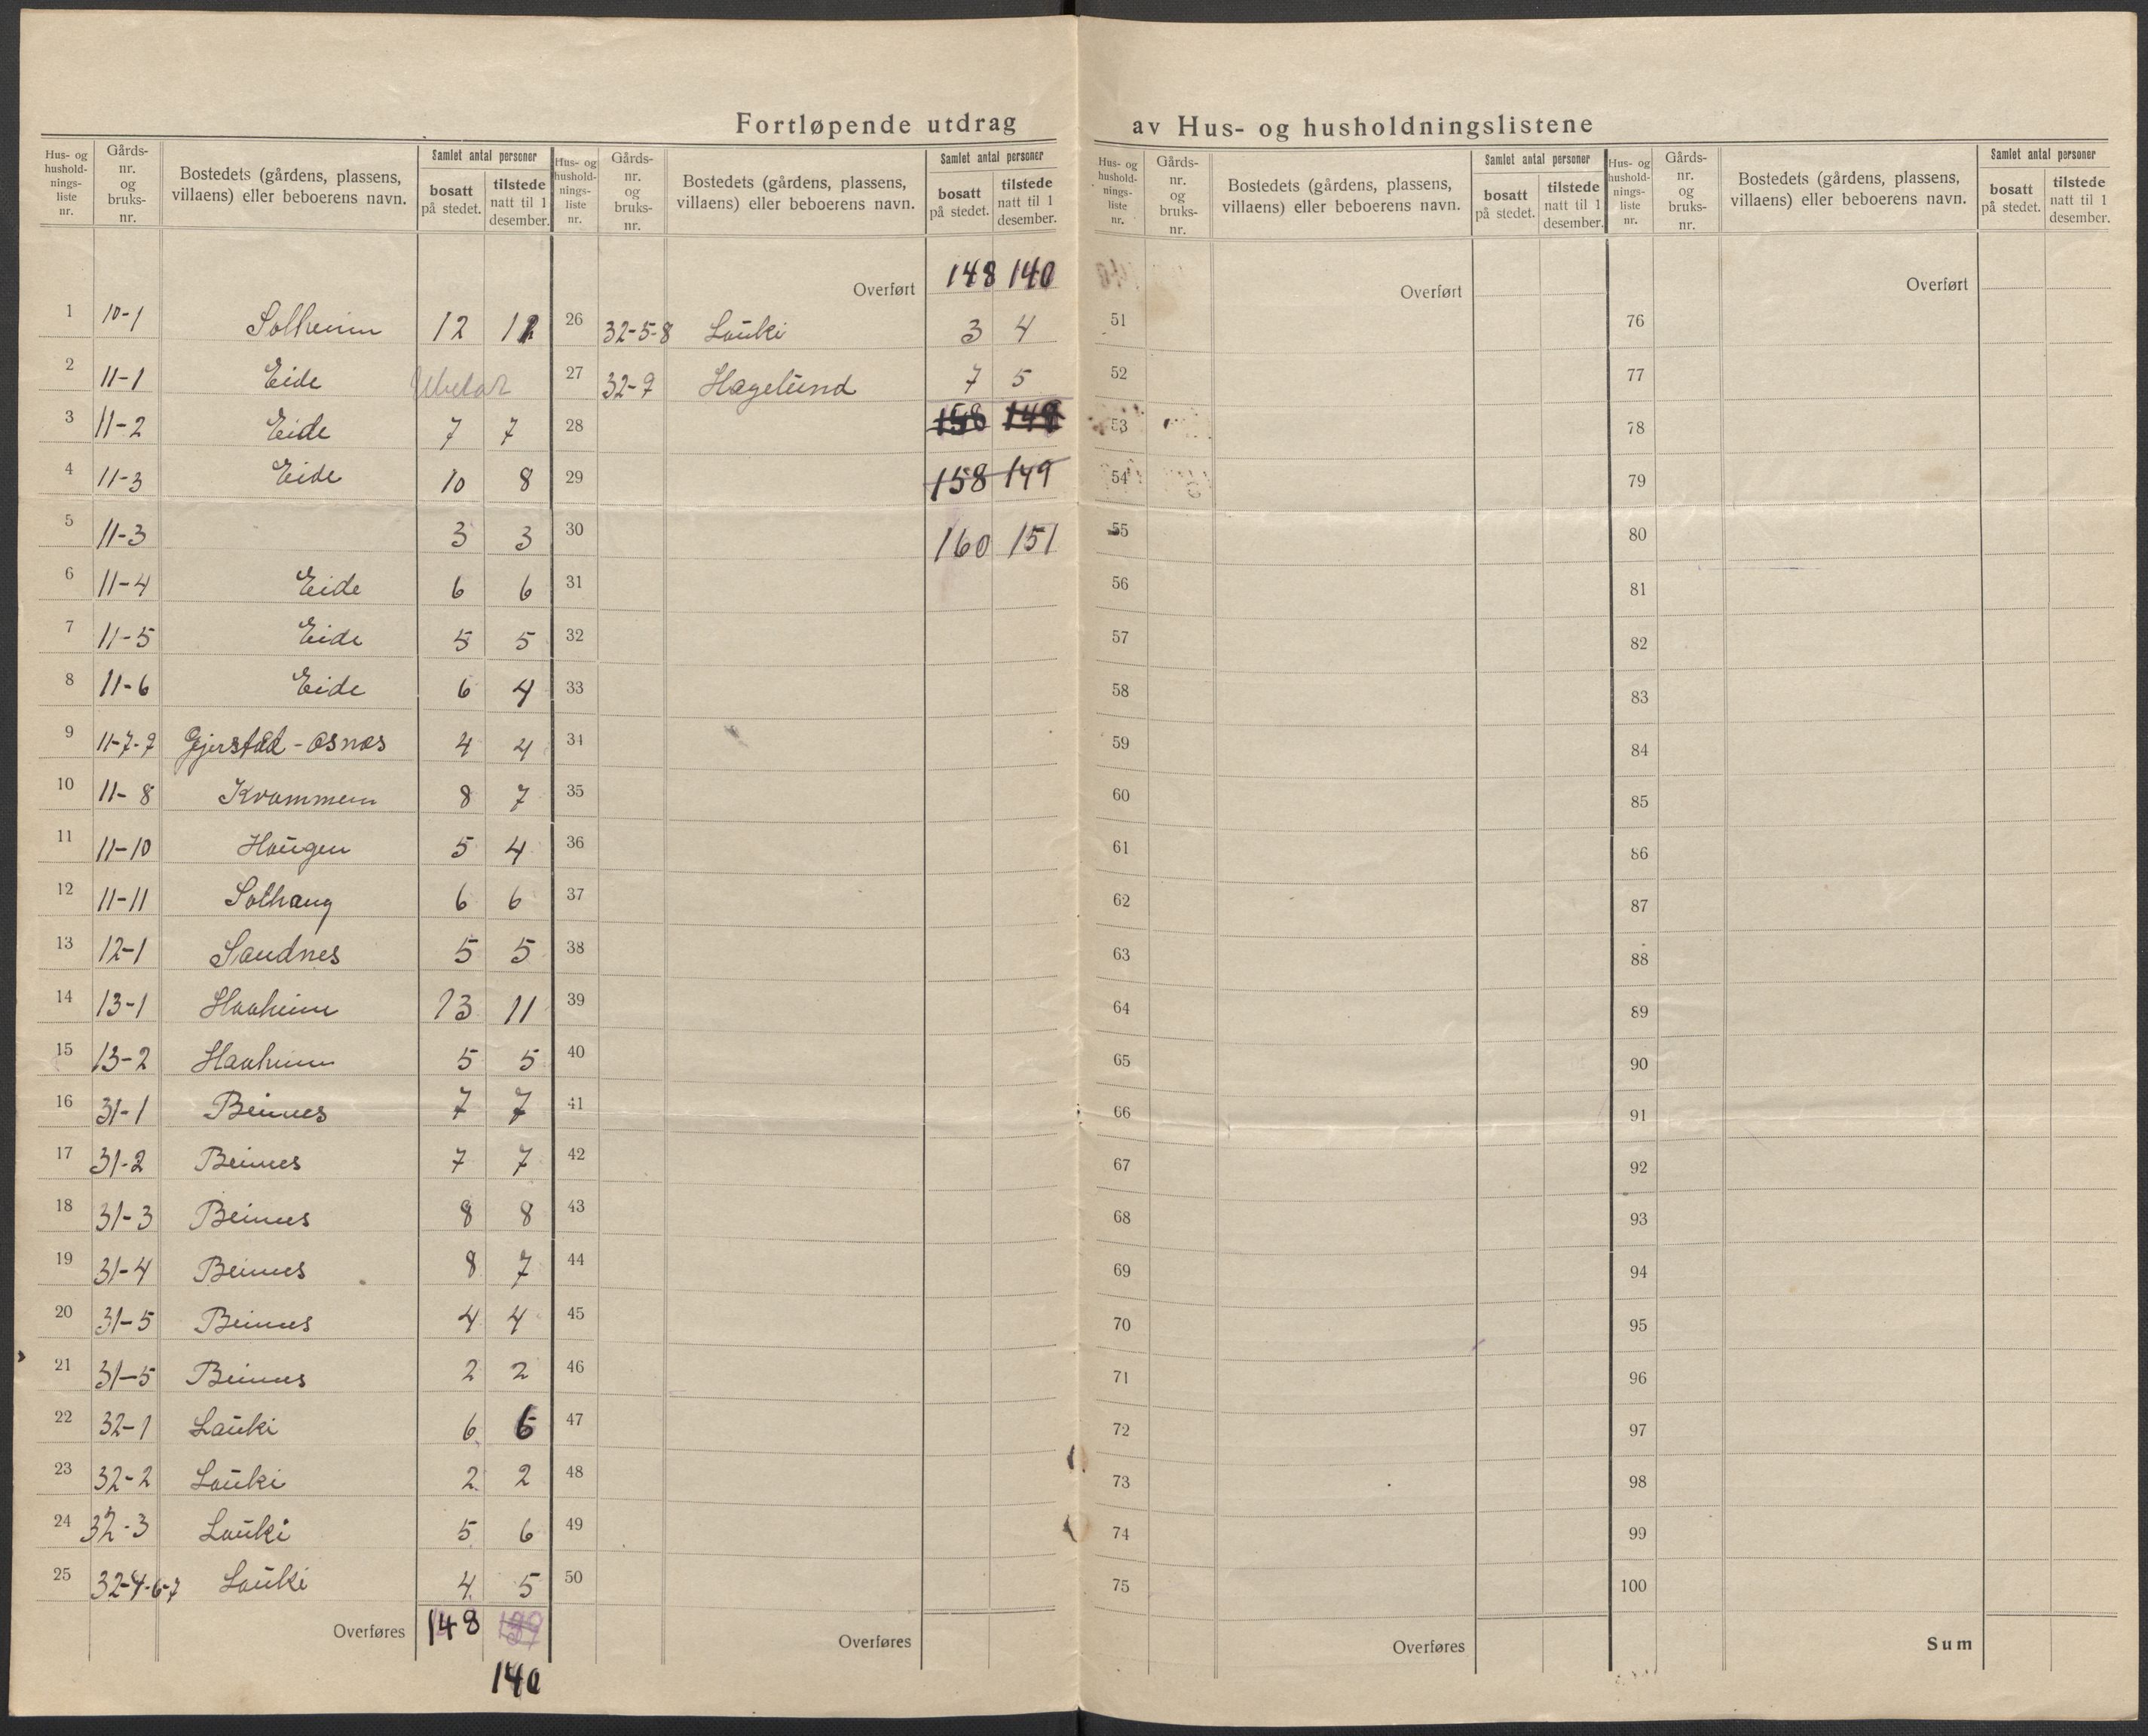 Fortløpende utdrag av Hus- og husholdningslistene
Hus- og hushold- nings- liste nr. Gårds- nr. og bruks- nr. Bostedets (gårdens, plassens, villaens) eller beboerens navn. Samlet antal personer bosatt på stedet. tilstede natt til 1 desember.
1 10-1 Solheim 12 12
2 11-1 Eide Ubebot
3 11-2 Eide 7 7
4 11-3 Eide 10 8
5 11-3 3 3
6 11-4 Eide 6 6
7 11-5 Eide 5 5
8 11-6 Eide 6 4
9 11-7-9 Gjerstad-Osnes 4 4
10 11-8 Kvammem 8 7
11 11-10 Haugen 5 4
12 11-11 Solhaug 6 6
13 12-1 Sandnes 5 5
14 13-1 Haaheim 13 11
15 13-2 Haaheim 5 5
16 31-1 Beimnes 7 7
17 31-2 Beimnes 7 7
18 31-3 Beimnes 8 8
19 31-4 Beimnes 8 7
20 31-5 Beimnes 4 4
21 31-5 Beimnes 2 2
22 32-1 Lauki 6 6
23 32-2 Lauki 2 2
24 32-3 Lauki 5 6
25 32-4-6-7 Lauki 4 5
Overføres 148 139
140
Hus- og hushold- nings- liste nr. Gårds- nr. og bruks- nr. Bostedets (gårdens, plassens, villaens) eller beboerens navn. Samlet antal personer bosatt på stedet. tilstede natt til 1 desember.
Overført 148 140
26 32-5-8 Lauki 3 4
27 32-9 Hagelund 7 5
28 158 149
29 158 149
30 160 151
31
32
33
34
35
36
37
38
39
40
41
42
43
44
45
46
47
48
49
50
Overføres
Hus- og hushold- nings- liste nr. Gårds- nr. og bruks- nr. Bostedets (gårdens, plassens, villaens) eller beboerens navn. Samlet antal personer bosatt på stedet. tilstede natt til 1 desember.
Overført
51
52
53
54
55
56
57
58
59
60
61
62
63
64
65
66
67
68
69
70
71
72
73
74
75
Overføres
Hus- og hushold- nings- liste nr. Gårds- nr. og bruks- nr. Bostedets (gårdens, plassens, villaens) eller beboerens navn. Samlet antal personer bosatt på stedet. tilstede natt til 1 desember.
Overført
76
77
78
79
80
81
82
83
84
85
86
87
88
89
90
91
92
93
94
95
96
97
98
99
100
Sum